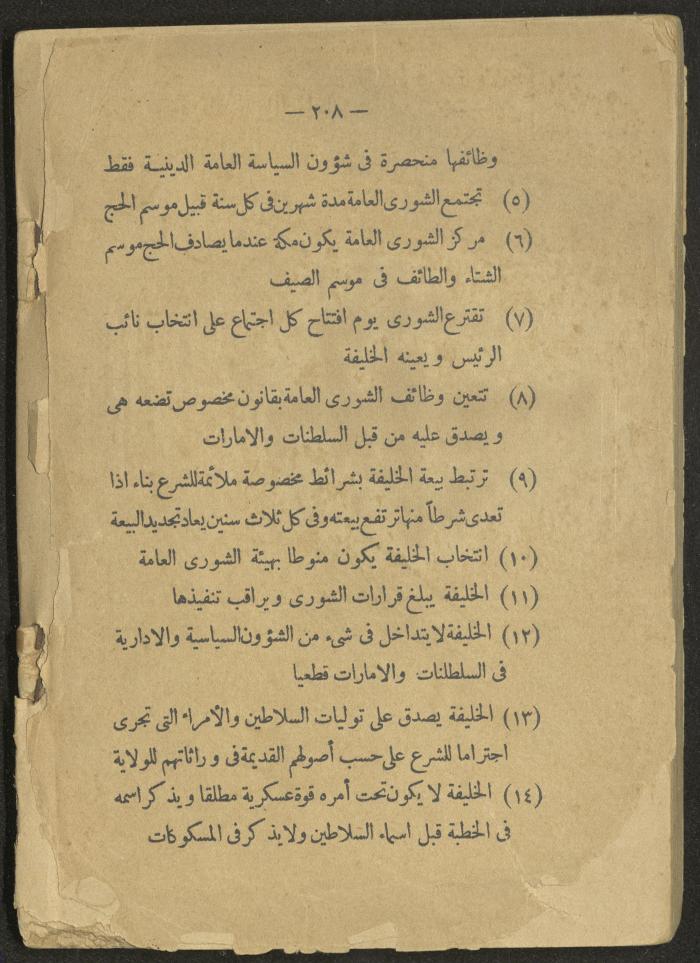 — ٢٠٨ —
وظائفها منحصرة فى شؤون السياسة العامة الدينية فقط
(٥) تجتمع الشورى العامة مدة شهرين فى كل سنة قبيل موسم الحج
(٦) مركز الشورى العامة يكون مكة عندما يصادف الحج موسم
الشتاء والطائف فى موسم الصيف
(٧) تقترع الشورى يوم افتتاح كل اجتماع على انتخاب نائب
الرئيس ويعينه الخليفة
(٨) تتعين وظائف الشورى العامة بقانون مخصوص تضعه هى
ويصدق عليه من قبل السلطنات والامارات
(٩) ترتبط بيعة الخليفة بشرائط مخصوصة ملائمة للشرع بناء اذا
تعدى شرطاً منها ترتفع بيعته وفى كل ثلاث سنين يعاد تجديد البيعة
(١٠) انتخاب الخليفة يكون منوطا بهيئة الشورى العامة
(١١) الخليفة يبلغ قرارات الشورى ويراقب تنفيذها
(١٢) الخليفة لا يتداخل فى شىء من الشؤون السياسية والادارية
فى السلطلنات والامارات قطعيا
(١٣) الخليفة يصدق على توليات السلاطين والأمراء التى تجرى
احتراما للشرع على حسب أصولهم القديمة فى وراثاتهم للولاية
(١٤) الخليفة لا يكون تحت أمره قوة عسكرية مطلقا ويذكر اسمه
فى الخطبة قبل اسماء السلاطين ولا يذكر فى المسكوكات